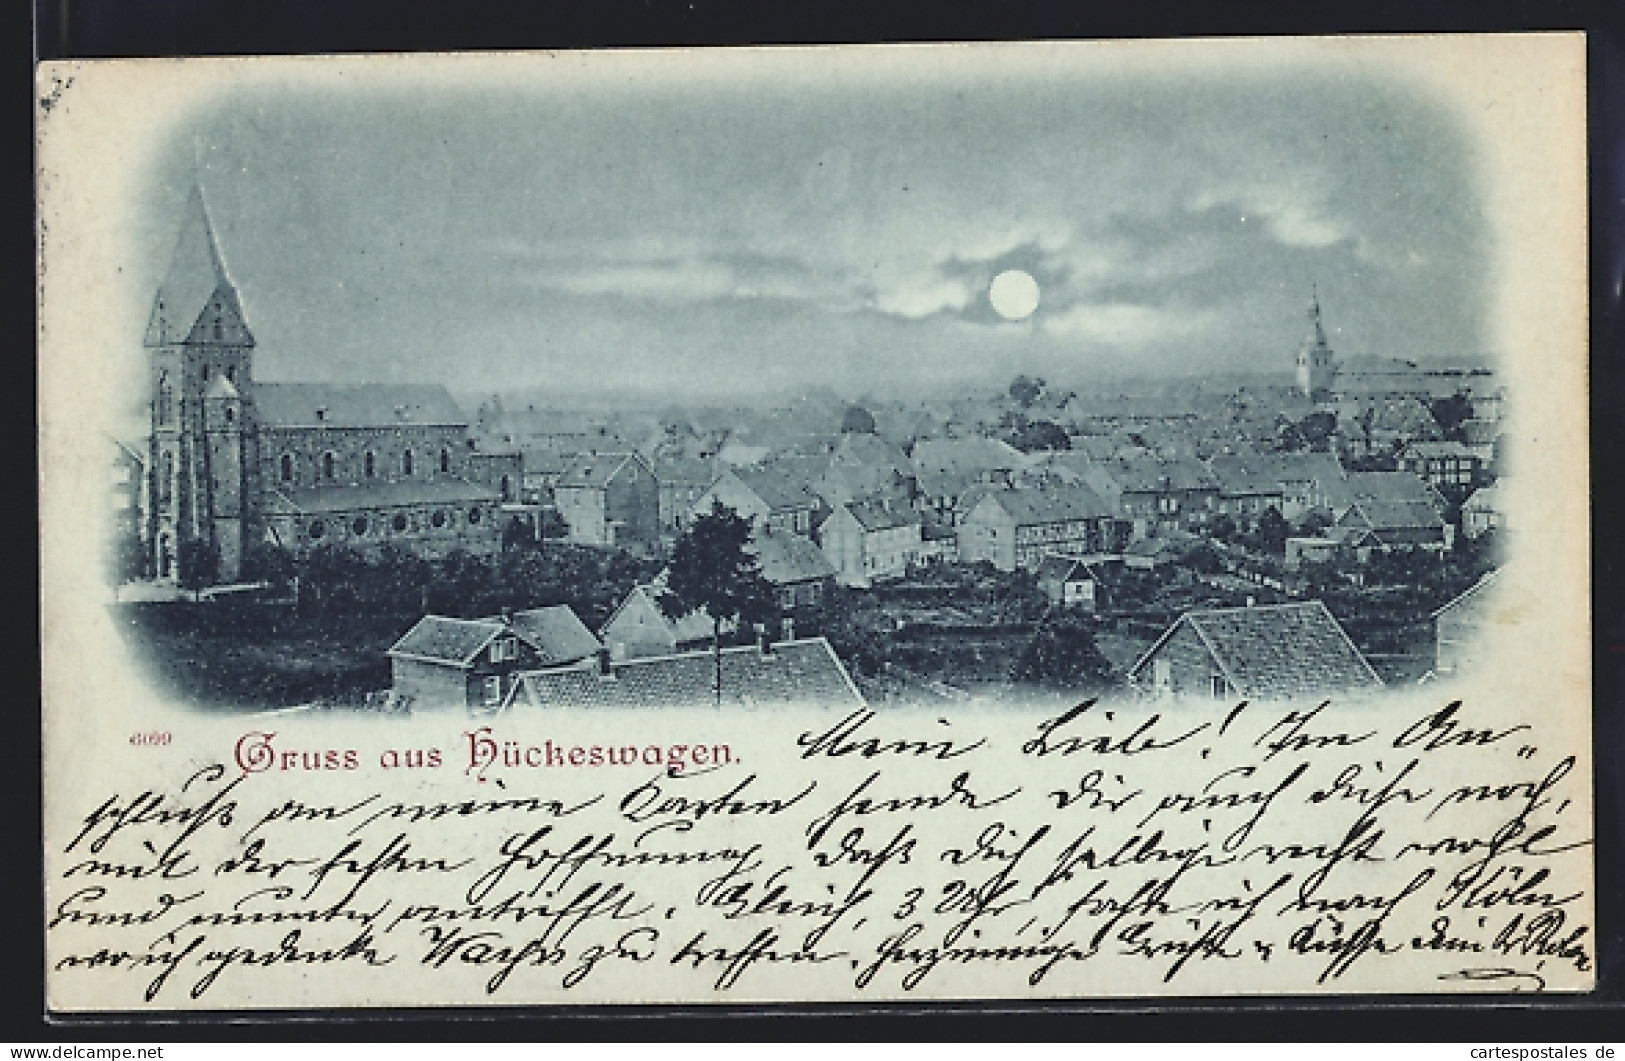 6099
Gruss aus Hückeswagen.
Mein Lieb! Im An„
schluß an meine Karten sende Dir auch diese noch,
mit der festen Hoffnung, daß Dich selbige recht wohl
und munter antrifft. Gleich, 3 Uhr, fahre ich nach Köln
wo ich gedenke zu treffen. Herzinnige Grüße u Küsse Dein
cartespostales de